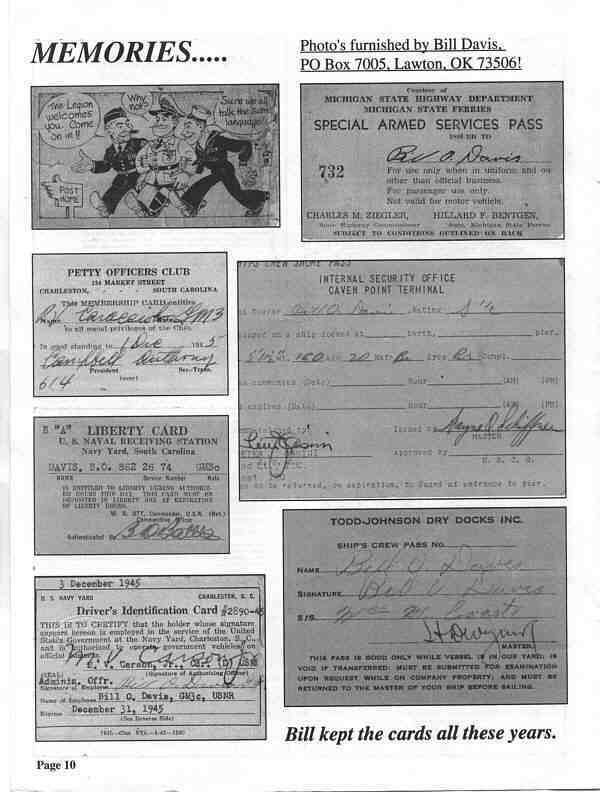 MEMORIES.....
Photo's furnished by Bill Davis,
PO Box 7005, Lawton, OK 73506!
The Legion
welcomes
you. Come
on in!!
Why
not?
Sure we all
talk the same
language!
POST
HOME
Courtesy of
MICHIGAN STATE HIGHWAY DEPARTMENT
MICHIGAN STATE FERRIES
SPECIAL ARMED SERVICES PASS
ISSUED TO
Bill O. Davis
732
For use only when in uniform and on
other than official business.
For passenger use only.
Not valid for motor vehicle.
CHARLES M. ZIEGLER, HILLARD F. BENTGEN,
State Highway Commissioner Supt. Michigan State Ferries
SUBJECT TO CONDITIONS OUTLINED ON BACK
PETTY OFFICERS CLUB
134 MARKET STREET
CHARLESTON, SOUTH CAROLINA
This MEMBERSHIP CARD entitles
to all social privileges of the Club.
In good standing to 1 Dec 1945
Campbell Anthony
President Sec.-Treas.
614
(over)
SHIPS CREW SHORE PASS
INTERNAL SECURITY OFFICE
CAVEN POINT TERMINAL
Bill O. Davis Rating
on a ship locked at berth, pier.
160 20
commences (Date) Hour (AM) (PM)
expires (Date) Hour (AM) (PM)
Issued by
MASTER
Approved by
U. S. C. G.
to be returned, on expiration, to Guard at entrance to pier.
"A" LIBERTY CARD
U. S. NAVAL RECEIVING STATION
Navy Yard, South Carolina
DAVIS, B.O. 862 26 74 GM3c
NAME Service Number Rate
IS ENTITLED TO LIBERTY DURING AUTHORIZED
HOURS THIS DAY. THIS CARD MUST BE
DEPOSITED IN LIBERTY BOX AT EXPIRATION
OF LIBERTY HOURS.
Commander, U.S.N. (Ret.)
Commanding Officer
Authenticated By
TODD-JOHNSON DRY DOCKS INC.
SHIP'S CREW PASS No.
NAME Bill O Davis
SIGNATURE Bill O Davis
S/S
MASTER
THIS PASS IS GOOD ONLY WHILE VESSEL IS IN OUR YARD; IS
VOID IF TRANSFERRED; MUST BE SUBMITTED FOR EXAMINATION
UPON REQUEST WHILE ON COMPANY PROPERTY; AND MUST BE
RETURNED TO THE MASTER OF YOUR SHIP BEFORE SAILING.
3 December 1945
U. S. NAVY YARD CHARLESTON, S. C.
Driver's Identification Card #2890-45
THIS IS TO CERTIFY that the holder whose signature
appears hereon is employed in the service of the United
States Government at the Navy Yard, Charleston, S. C.,
and is authorized to operate government vehicles on
official business.
(SEAL) (Signature of Authorizing Officer)
Adminis. Offr.
Signature of Employee
Name of Employee Bill O. Davis, GM3c, USNR
Expires December 31, 1945
(See Reverse Side)
Bill kept the cards all these years.
Page 10